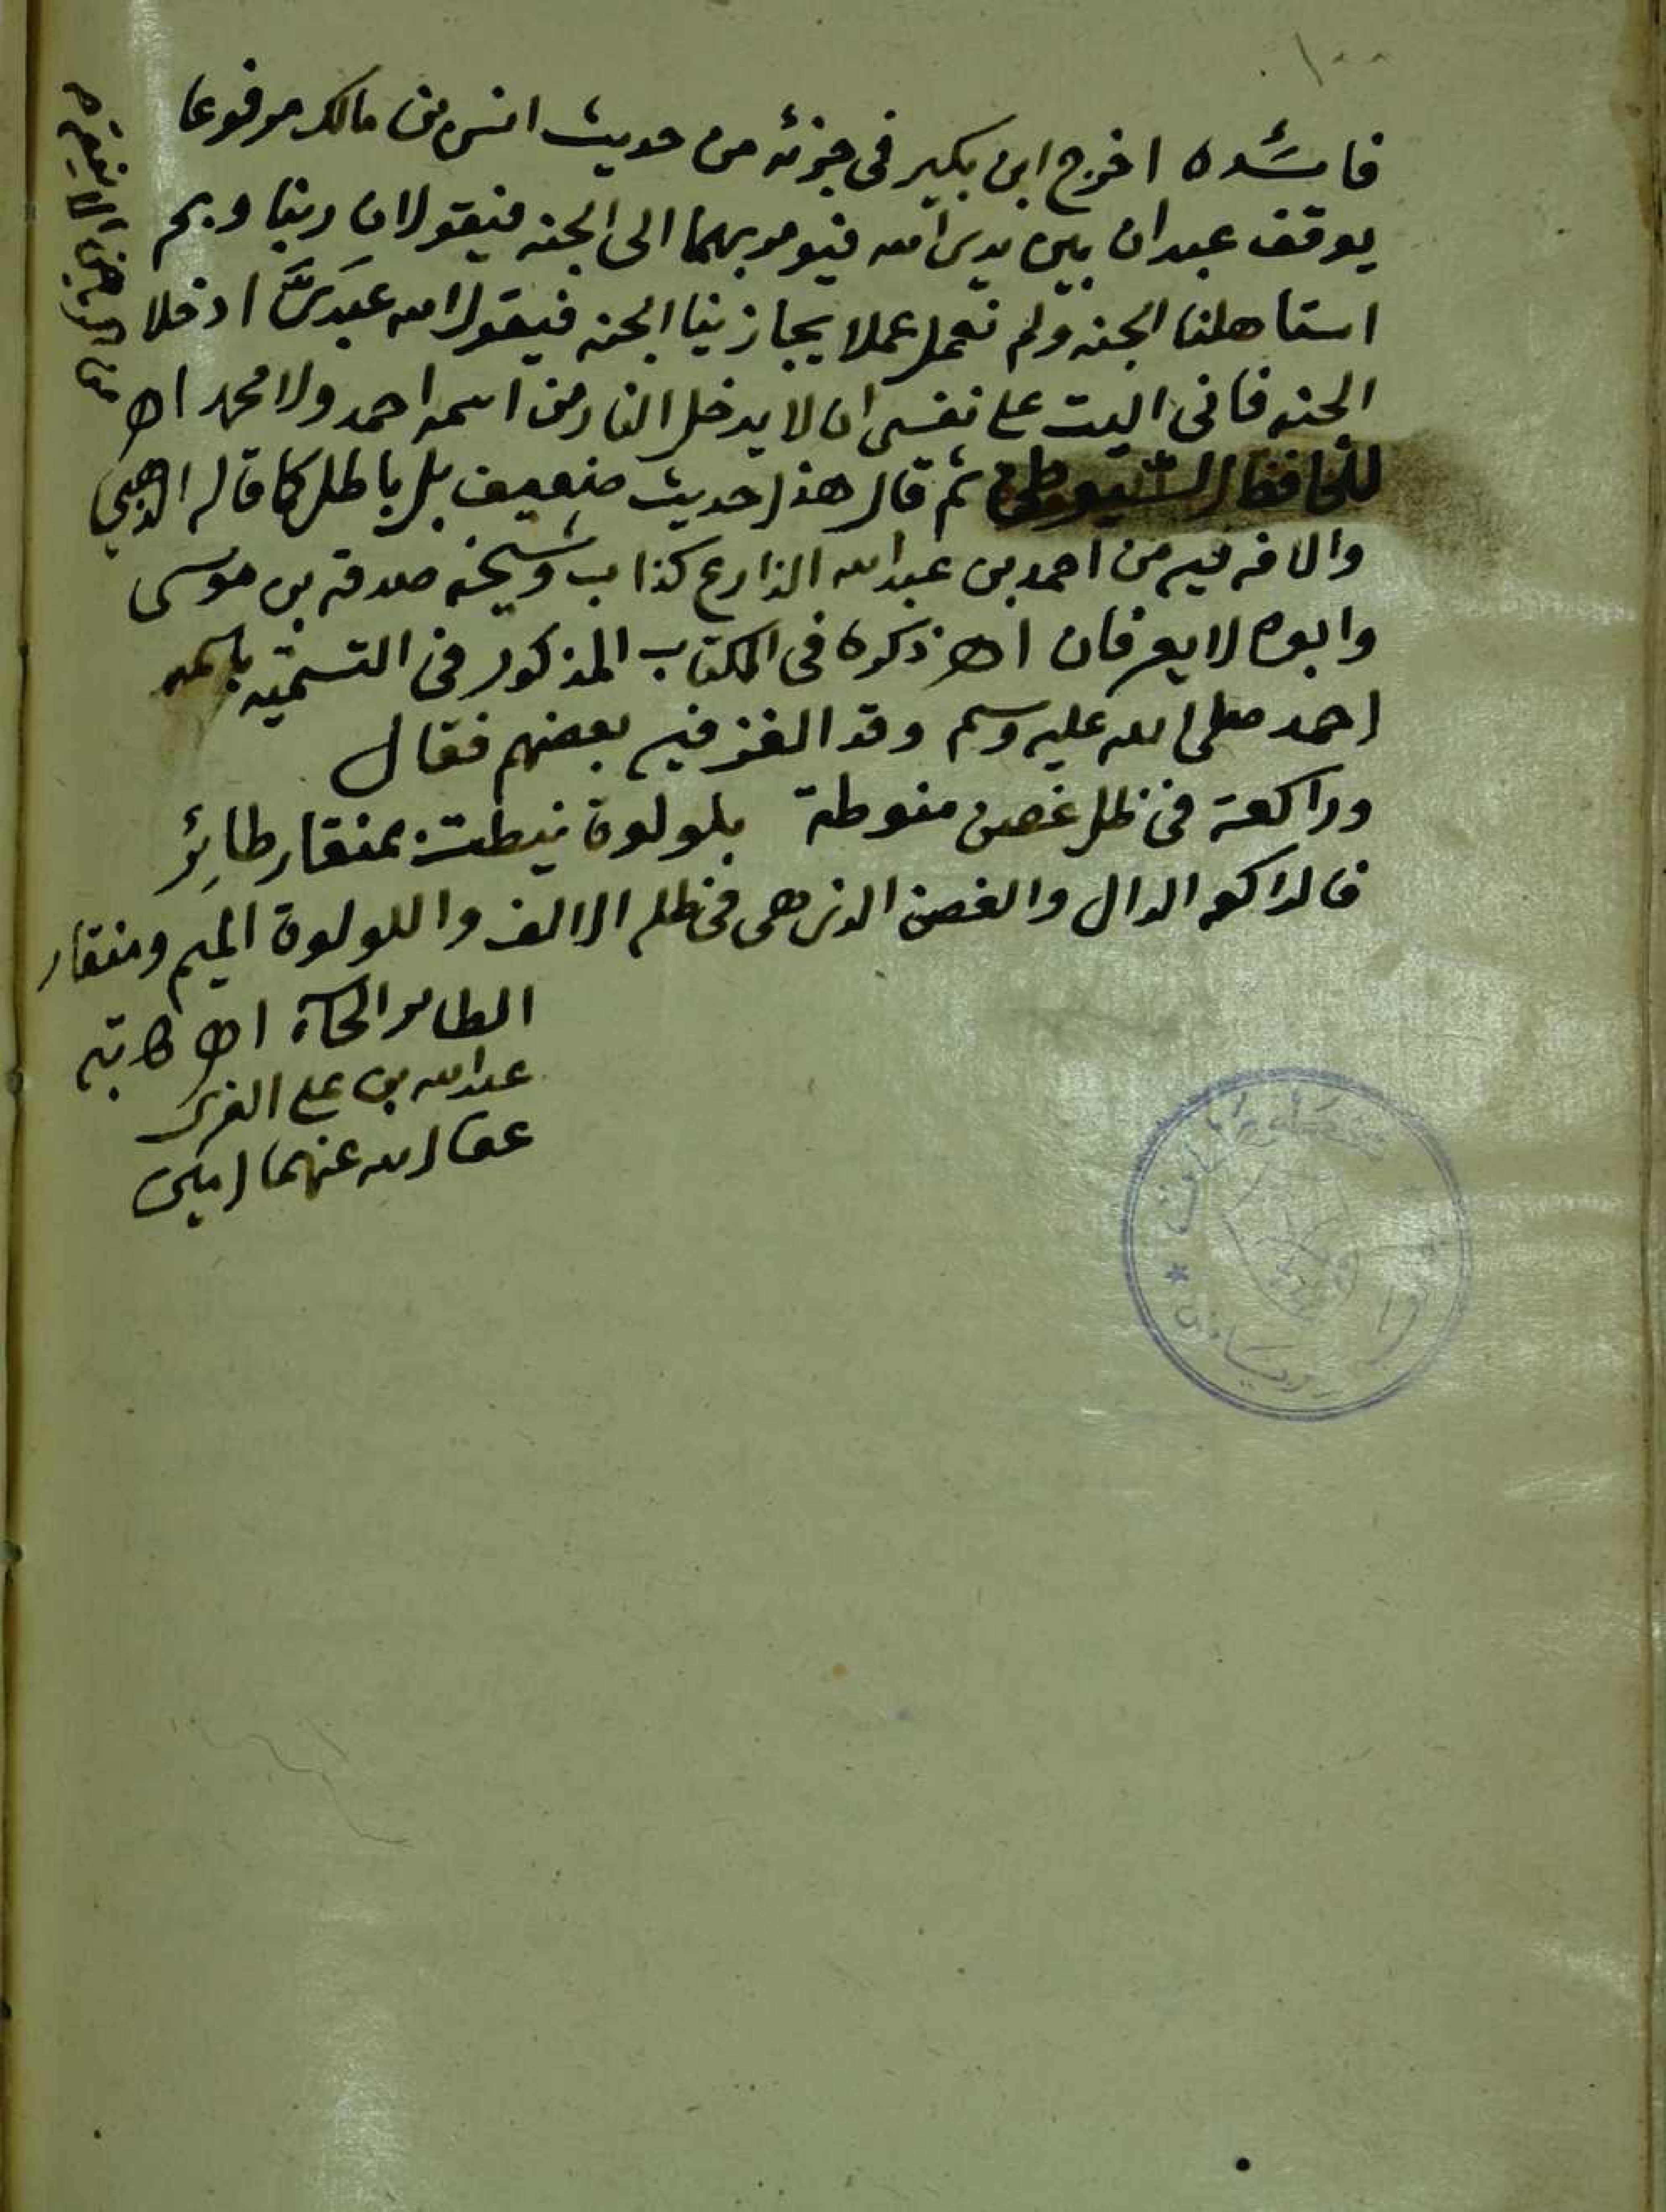 ١٠٠
فائده اخرج ابن بكير فى جزئه من حديث انس بن مالك مرفوعا
يوقف عبدان بين يدى الله فيومر بهما الى الجنه فيقولان ربنا وبم
استاهلنا الجنه ولم نعمل عملا يجازينا الجنه فيقول الله عبدىَّ ادخلا
الجنه فانى اليت على نفسى ان لا يدخل النار من اسمه احمد ولا محمد اه
للحافظ السيوطى ثم قال هذا حديث ضعيف بل باطل كما قاله الذهبي
والافه فيه من احمد بن عبدالله الذارع كذاب وشيخه صدقه بن موسى
وابوه لا يعرفان اه ذكره فى الكتاب المذكور فى التسميه باسمه
احمد صلى الله عليه وسلم وقد الغز فيه بعضهم فقال
وراكعة فى ظل غصن منوطة بلولوة نيطت بمنقار طائِر
فالراكعه الدال والغصن الذى هى فى ظله الالف واللولوة الميم ومنقار
الطائر الحاء اه كاتبه
عبدالله بن على
عفا الله عنهما امين